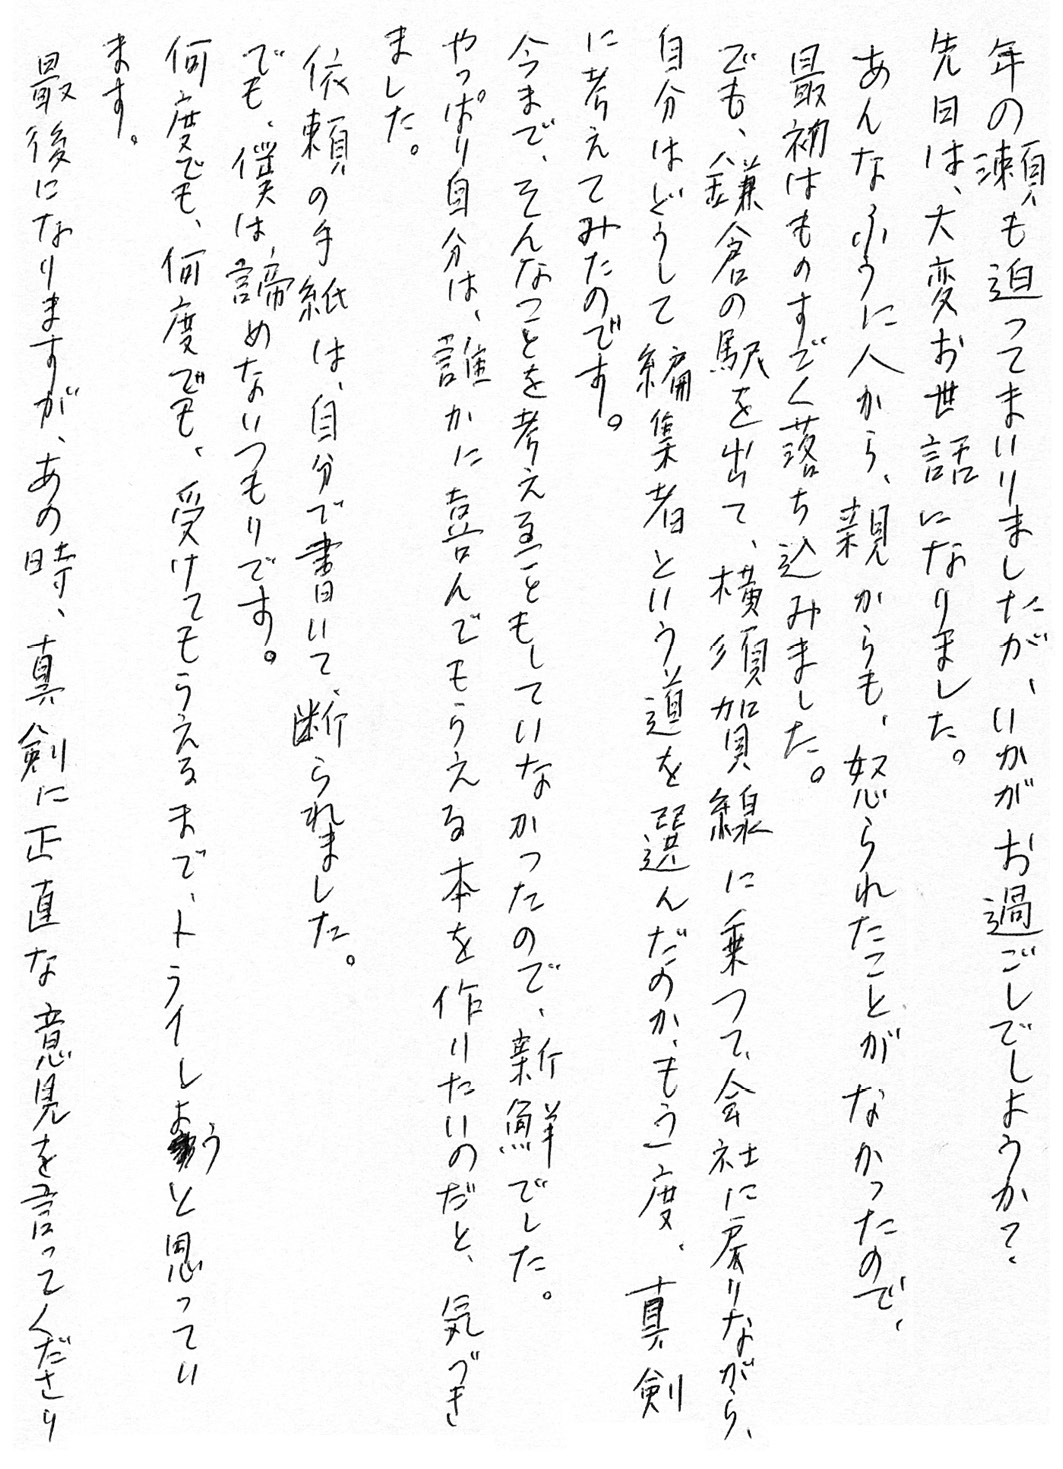 年の瀬も迫ってまいりましたが、いかがお過ごしでしょうか？
先日は、大変お世話になりました。
あんなふうに人から、親からも、怒られたことがなかったので、
最初はものすごく落ち込みました。
でも、鎌倉の駅を出て、横須賀線に乗って、会社に戻りながら、
自分はどうして編集者という道を選んだのか、もう一度、真剣
に考えてみたのです。
今まで、そんなことを考えることもしていなかったので、新鮮でした。
やっぱり自分は、誰かに喜んでもらえる本を作りたいのだと、気づき
ました。
依頼の手紙は、自分で書いて、断られました。
でも、僕は、諦めないつもりです。
何度でも、何度でも、受けてもらえるまで、トライしようと思ってい
ます。
最後になりますが、あの時、真剣に正直な意見を言ってくださり